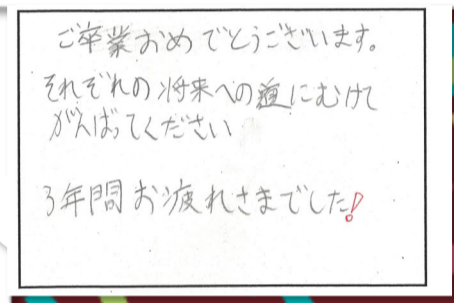 ご卒業おめでとうございます。
それぞれの将来への道にむけて
がんばってください
3年間お疲れさまでした!